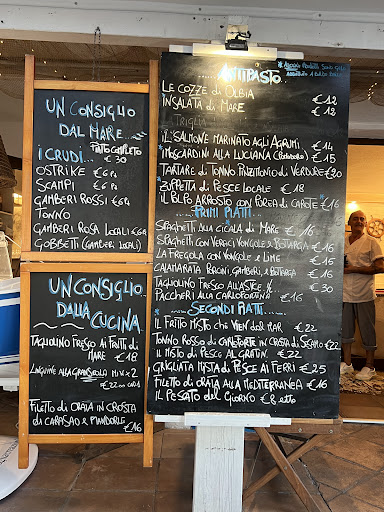 UN CONSIGLIO
DAL MARE...
PIATTO COMPLETO
€ 30
I CRUDI...
OSTRICHE €6 PZ
SCAMPI €6 PZ
GAMBERI ROSSI €6 PZ
TONNO
GAMBERI ROSA LOCALI €6
GOBBETTI (GAMBERI LOCALI)
UN CONSIGLIO
DALLA
CUCINA
TAGLIOLINO FRESCO AI FRUTTI DI
MARE €18
LINGUINE ALLA MIN X 2
€22,00 CAD1
FILETTO DI ORATA IN CROSTA
DI CARASAU E MANDORLE €16
... ANTIPASTO...
LE COZZE DI OLBIA €12
INSALATA DI MARE €12
TRIGLIA
IL SALMONE MARINATO AGLI AGRUMI €14
*MOSCARDINI ALLA LUCIANA €15
TARTARE DI TONNO PINZIMONIO DI VERDURE €20
ZUPPETTA DI PESCE LOCALE €18
IL POLPO ARROSTO CON PUREA DI CAROTE €16
PRIMI PIATTI...
SPAGHETTI ALLA CICALA DI MARE €16
SPAGHETTI CON VERACI VONGOLE E BOTTARGA €16
LA FREGOLA CON VONGOLE E LIME €15
CALAMARATA PORCINI GAMBERI, E BOTTARGA €16
TAGLIOLINO FRESCO ALL'ASTICE ½ €30
PACCHERI ALLA CARLOFORTINA €16
SECONDI PIATTI...
IL FRITTO MISTO CHE VIEN DAL MAR €22
TONNO ROSSO DI CARLOFORTE IN CROSTA DI SESAMO €22
IL MISTO DI PESCE AL GRATIN €22
GRIGLIATA MISTA DI PESCE AI FERRI €25
FILETTO DI ORATA ALLA MEDITERRANEA €16
IL PESCATO DEL GIORNO €8 ETTO